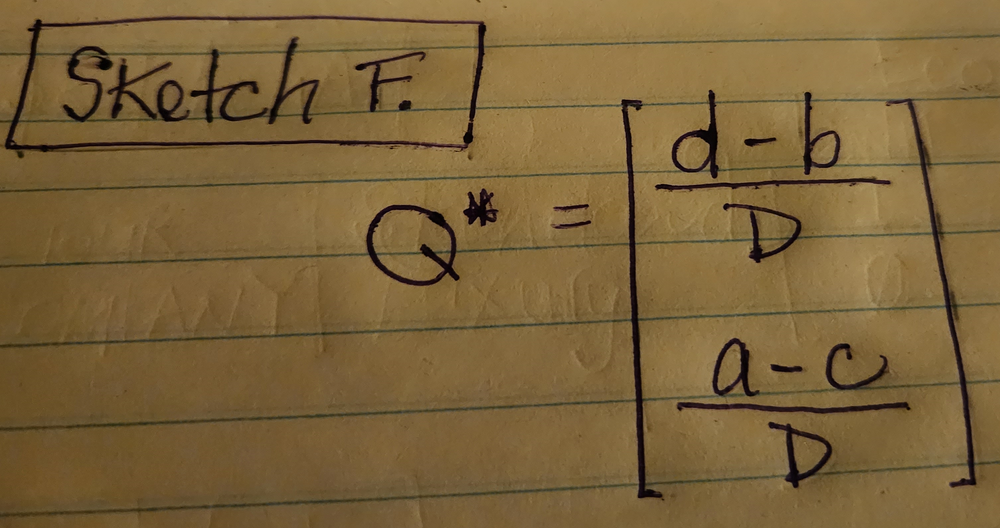 Sketch F.
d - b
Q* =
D
a - c
D